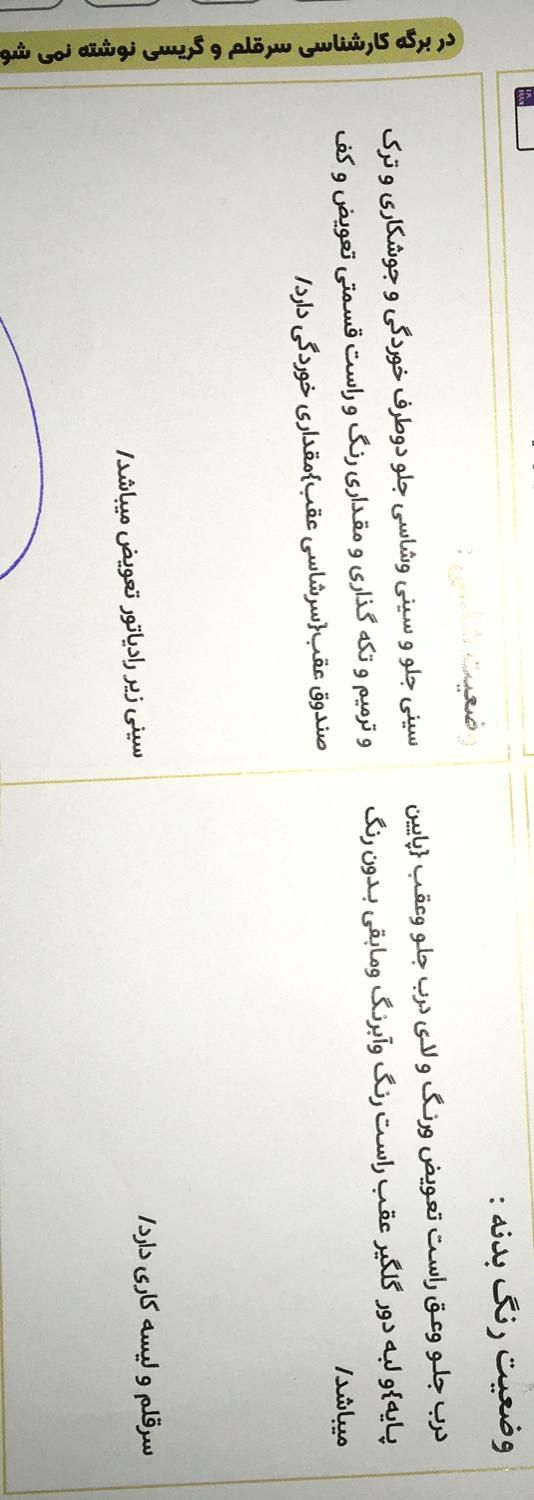 در برگه کارشناسی سرقلم و گریسی نوشته نمی شو
وضعیت رنگ بدنه :
درب جلو وعق راست تعویض ورنگ و لای درب جلو وعقب {پایین
پایه}و لبه دور گلگیر عقب راست رنگ وآبرنگ ومابقی بدون رنگ
میباشد/
سرقلم و لیسه کاری دارد/
وضعیت شاسی :
سینی جلو و سینی وشاسی جلو دوطرف خوردگی و جوشکاری و ترک
و ترمیم و تکه گذاری و مقداری رنگ و راست قسمتی تعویض و کف
صندوق عقب{سرشاسی عقب}مقداری خوردگی دارد/
سینی زیر رادیاتور تعویض میباشد/